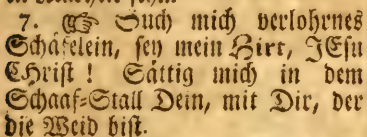 7. ☞ Such mich verlohrnes
Schäfelein, sey mein Hirt, JEsu
Christ ! Sättig mich in dem
Schaaf-Stall Dein, mit Dir, der
die Weid bist.